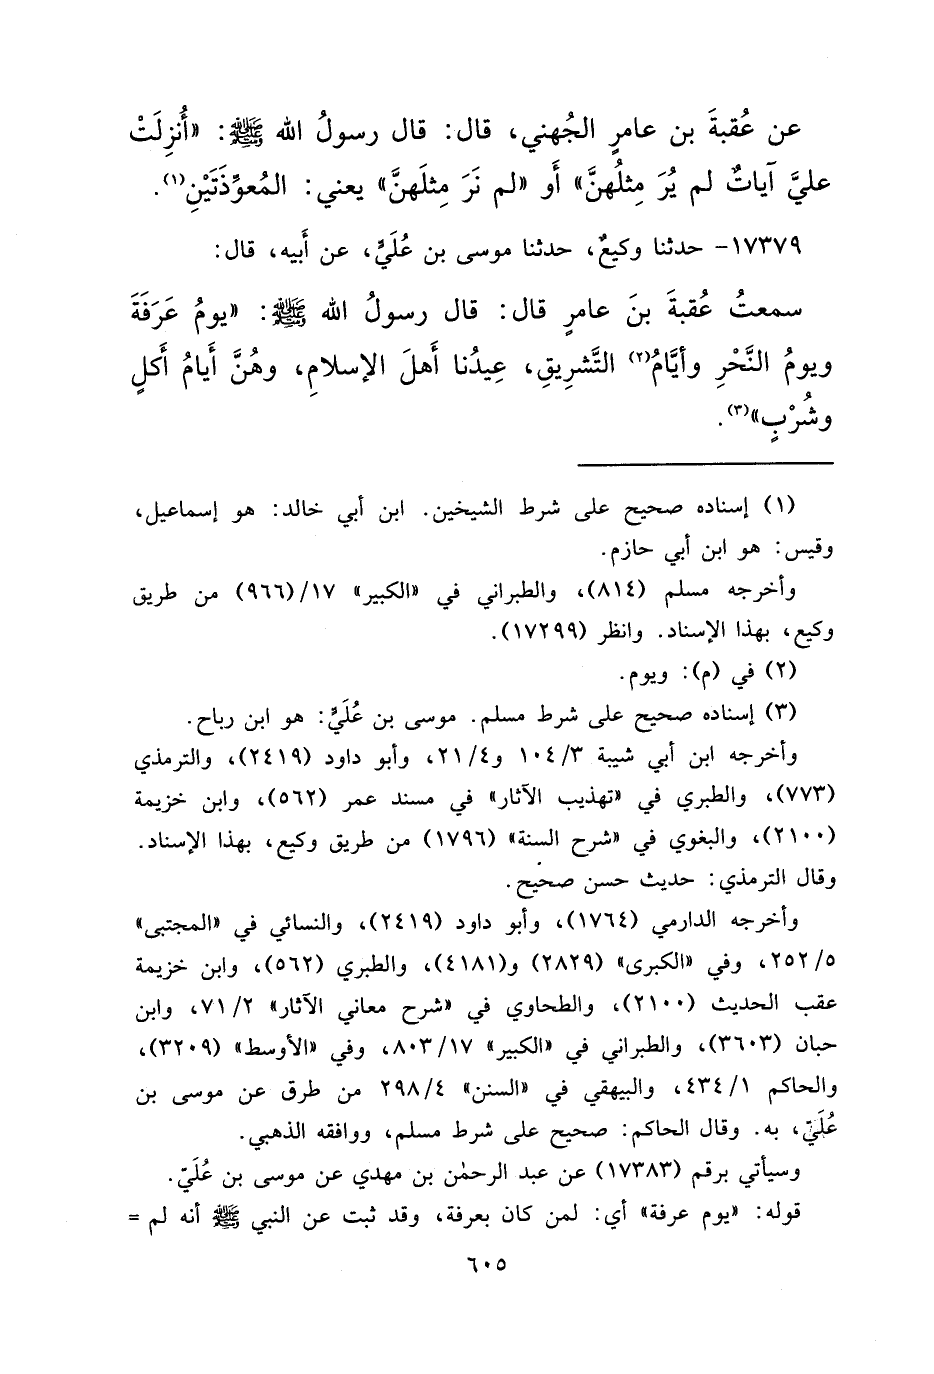 عن عُقبةَ بن عامرٍ الجُهني، قال: قال رسولُ الله ﷺ: «أُنزِلَتْ
عليَّ آياتٌ لم يُرَ مِثلُهنَّ» أَو «لم نَرَ مِثلَهنَّ» يعني: المُعوِّذَتَيْنِ(١).
١٧٣٧٩- حدثنا وكيعٌ، حدثنا موسى بن عُلَيٍّ، عن أَبيه، قال:
سمعتُ عُقبةَ بنَ عامرٍ قال: قال رسولُ الله ﷺ: «يومُ عَرَفَةَ
ويومُ النَّحْرِ وأيَّامُ(٢) التَّشرِيقِ، عِيدُنا أَهلَ الإسلامِ، وهُنَّ أَيامُ أَكلٍ
وشُرْبٍ»(٣).
(١) إسناده صحيح على شرط الشيخين. ابن أبي خالد: هو إسماعيل،
وقيس: هو ابن أبي حازم.
وأخرجه مسلم (٨١٤)، والطبراني في «الكبير» ١٧/(٩٦٦) من طريق
وكيع، بهذا الإسناد. وانظر (١٧٢٩٩).
(٢) في (م): ويوم.
(٣) إسناده صحيح على شرط مسلم. موسى بن عُلَيٍّ: هو ابن رباح.
وأخرجه ابن أبي شيبة ١٠٤/٣ و٢١/٤، وأبو داود (٢٤١٩)، والترمذي
(٧٧٣)، والطبري في «تهذيب الآثار» في مسند عمر (٥٦٢)، وابن خزيمة
(٢١٠٠)، والبغوي في «شرح السنة» (١٧٩٦) من طريق وكيع، بهذا الإسناد.
وقال الترمذي: حديث حسن صحيح.
وأخرجه الدارمي (١٧٦٤)، وأبو داود (٢٤١٩)، والنسائي في «المجتبى»
٢٥٢/٥، وفي «الكبرى» (٢٨٢٩) و(٤١٨١)، والطبري (٥٦٢)، وابن خزيمة
عقب الحديث (٢١٠٠)، والطحاوي في «شرح معاني الآثار» ٧١/٢، وابن
حبان (٣٦٠٣)، والطبراني في «الكبير» ٨٠٣/١٧، وفي «الأوسط» (٣٢٠٩)،
والحاكم ٤٣٤/١، والبيهقي في «السنن» ٢٩٨/٤ من طرق عن موسى بن
عُلَيّ، به. وقال الحاكم: صحيح على شرط مسلم، ووافقه الذهبي.
وسيأتي برقم (١٧٣٨٣) عن عبد الرحمٰن بن مهدي عن موسى بن عُلَيّ.
قوله: «يوم عرفة» أي: لمن كان بعرفة، وقد ثبت عن النبي ﷺ أنه لم =
٦٠٥